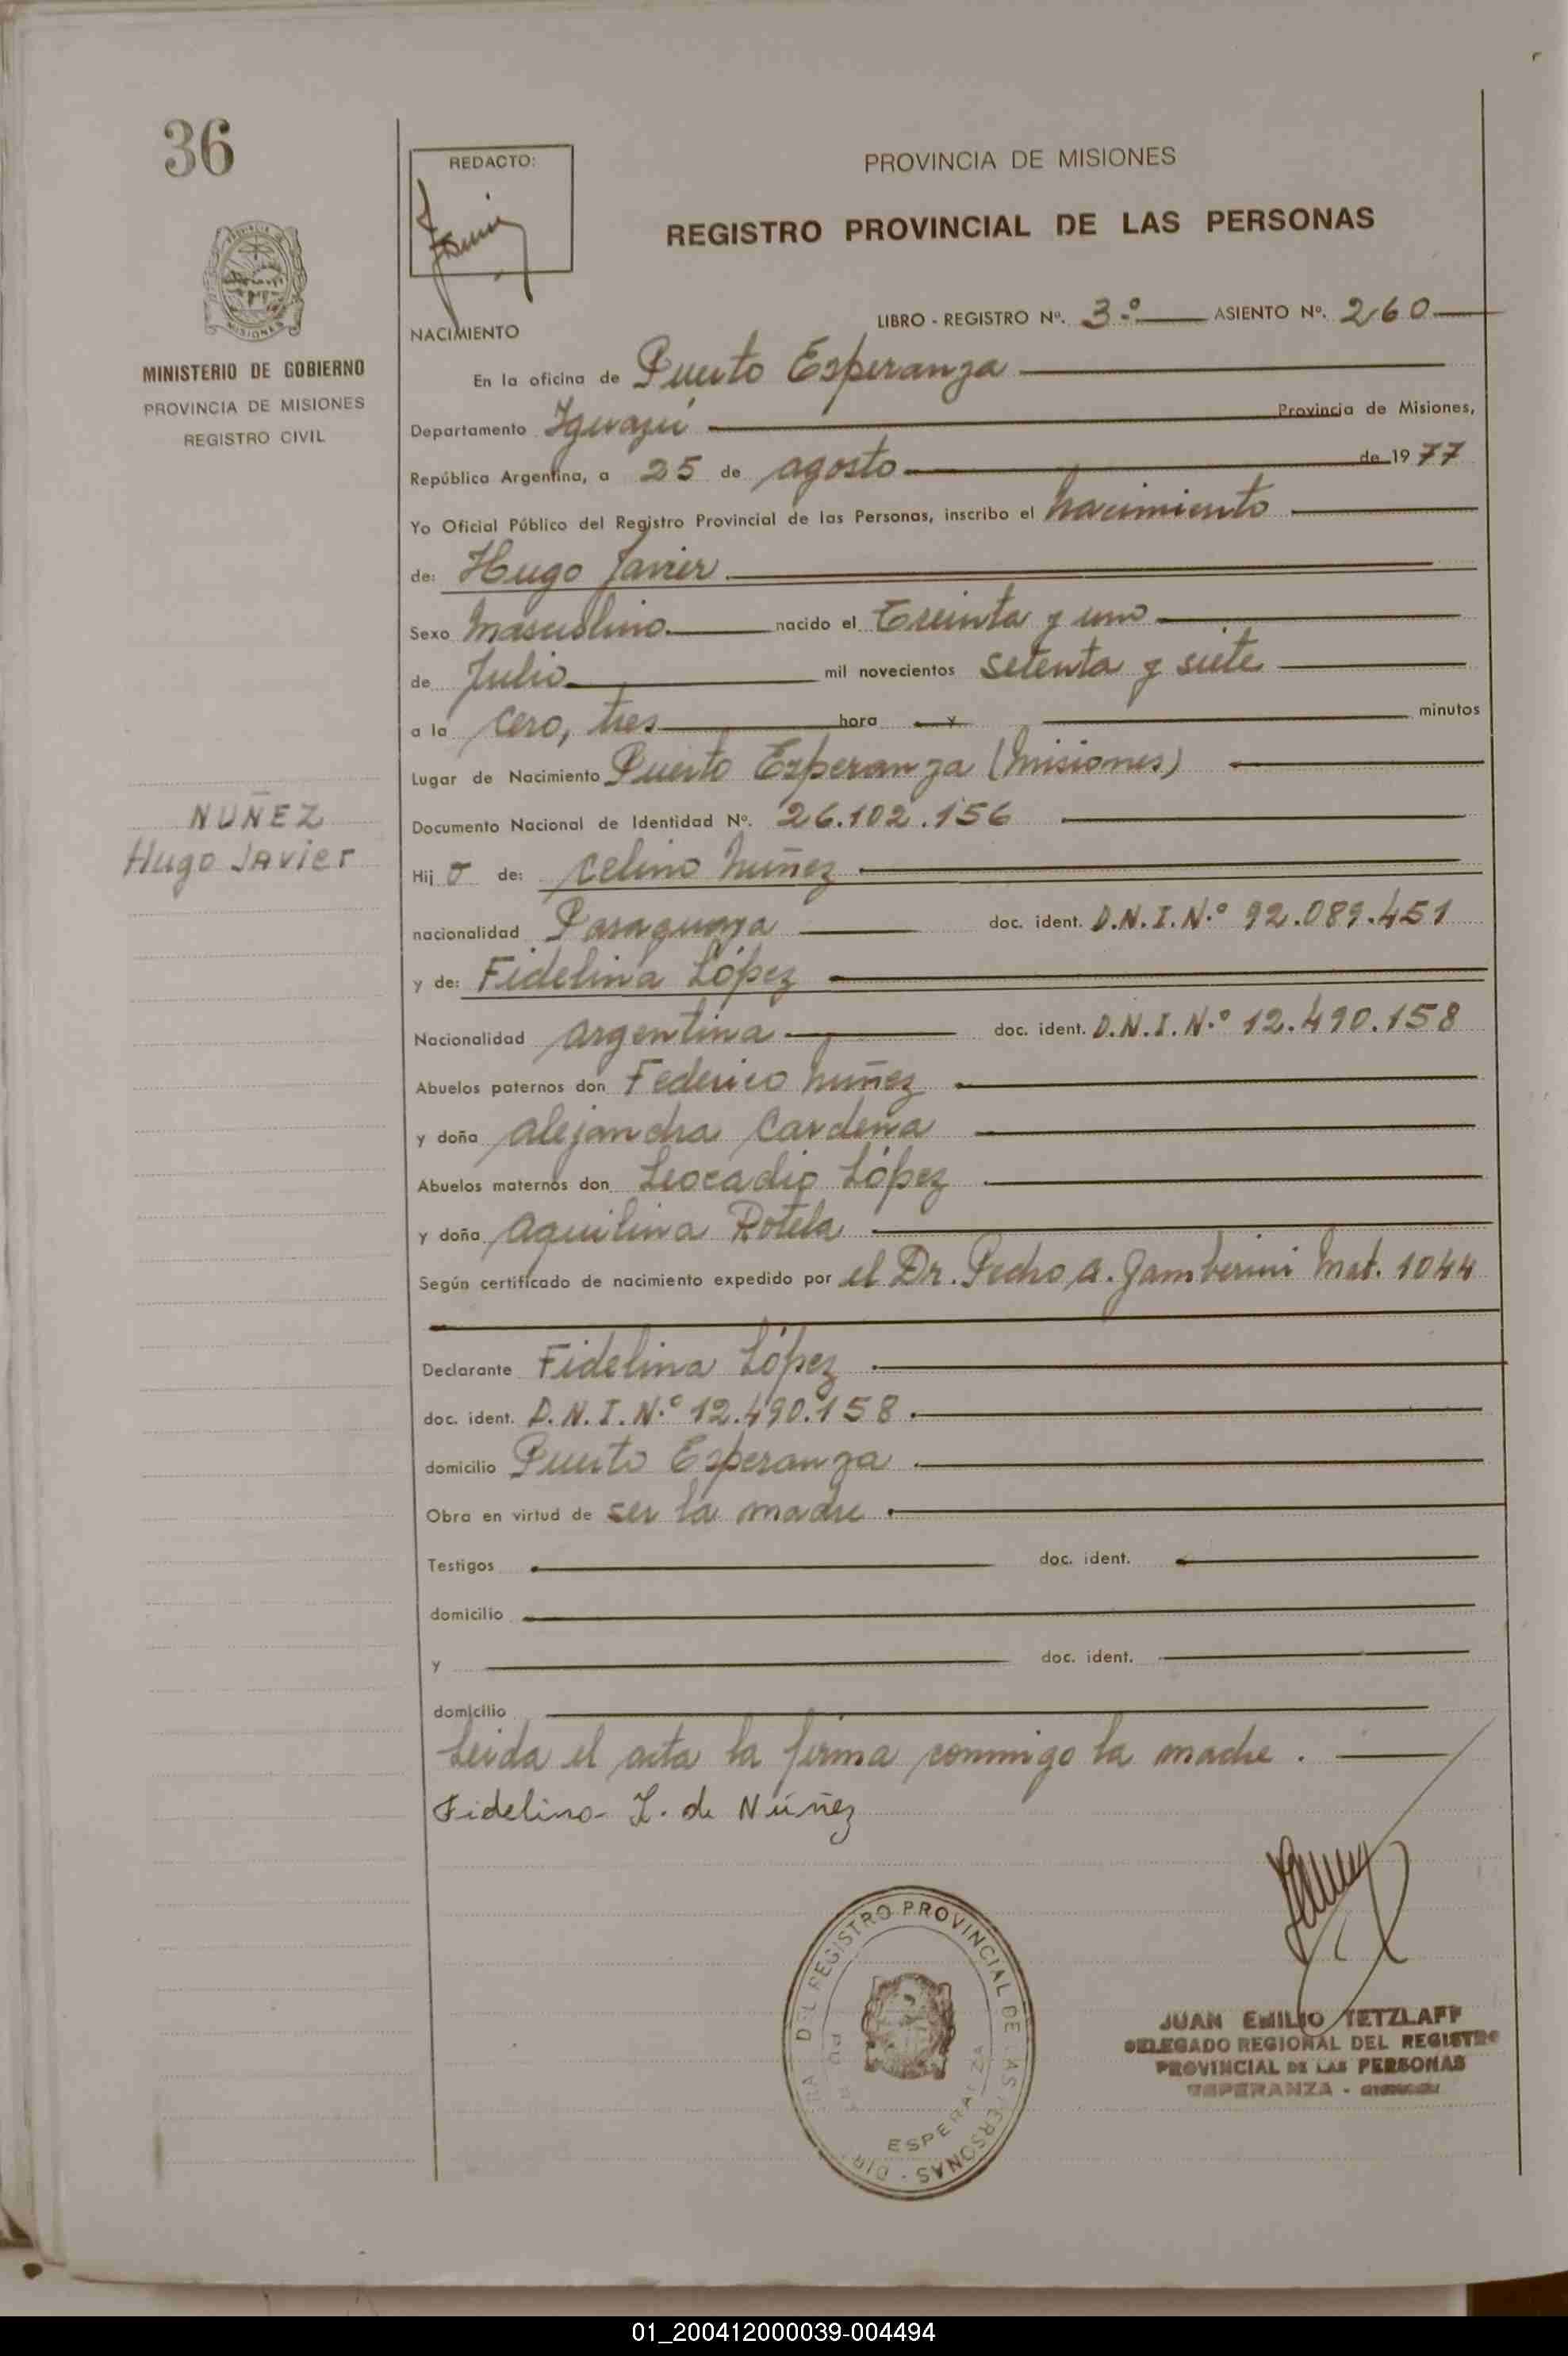 36
REDACTO:
PROVINCIA DE MISIONES
REGISTRO PROVINCIAL DE LAS PERSONAS
MISIONES
MINISTERIO DE GOBIERNO
PROVINCIA DE MISIONES
REGISTRO CIVIL
LIBRO - REGISTRO Nº. 3º ASIENTO Nº. 260
NACIMIENTO
En la oficina de Puerto Esperanza
Departamento Iguazú Provincia de Misiones,
República Argentina, a 25 de agosto de 1977
Yo Oficial Público del Registro Provincial de las Personas, inscribo el nacimiento
de: Hugo Javier
Sexo masculino nacido el treinta y uno
de Julio mil novecientos setenta y siete
a la cero, tres hora y minutos
Lugar de Nacimiento Puerto Esperanza (Misiones)
NUÑEZ
Hugo Javier
Documento Nacional de Identidad Nº. 26.102.156
Hij o de: Celino Nuñez
nacionalidad Paraguaya doc. ident. D.N.I.N.º 92.089.451
y de: Fidelina López
Nacionalidad argentina doc. ident. D.N.I.N.º 12.490.158
Abuelos paternos don Federico Nuñez
y doña Alejandra Cardena
Abuelos maternos don Leocadio López
y doña Aquilina Rotela
Según certificado de nacimiento expedido por el Dr. Pedro A. Gamberini Mat. 1044
Declarante Fidelina López
doc. ident. D.N.I.N.º 12.490.158.
domicilio Puerto Esperanza
Obra en virtud de ser la madre
Testigos doc. ident.
domicilio
y doc. ident.
domicilio
Leida el acta la firma conmigo la madre.
Fidelina L. de Núñez
DEL REGISTRO PROVINCIAL DE LAS PERSONAS - DIR
ESPERANZA
JUAN EMILIO TETZLAFF
DELEGADO REGIONAL DEL REGISTRO
PROVINCIAL DE LAS PERSONAS
ESPERANZA -
01_200412000039-004494